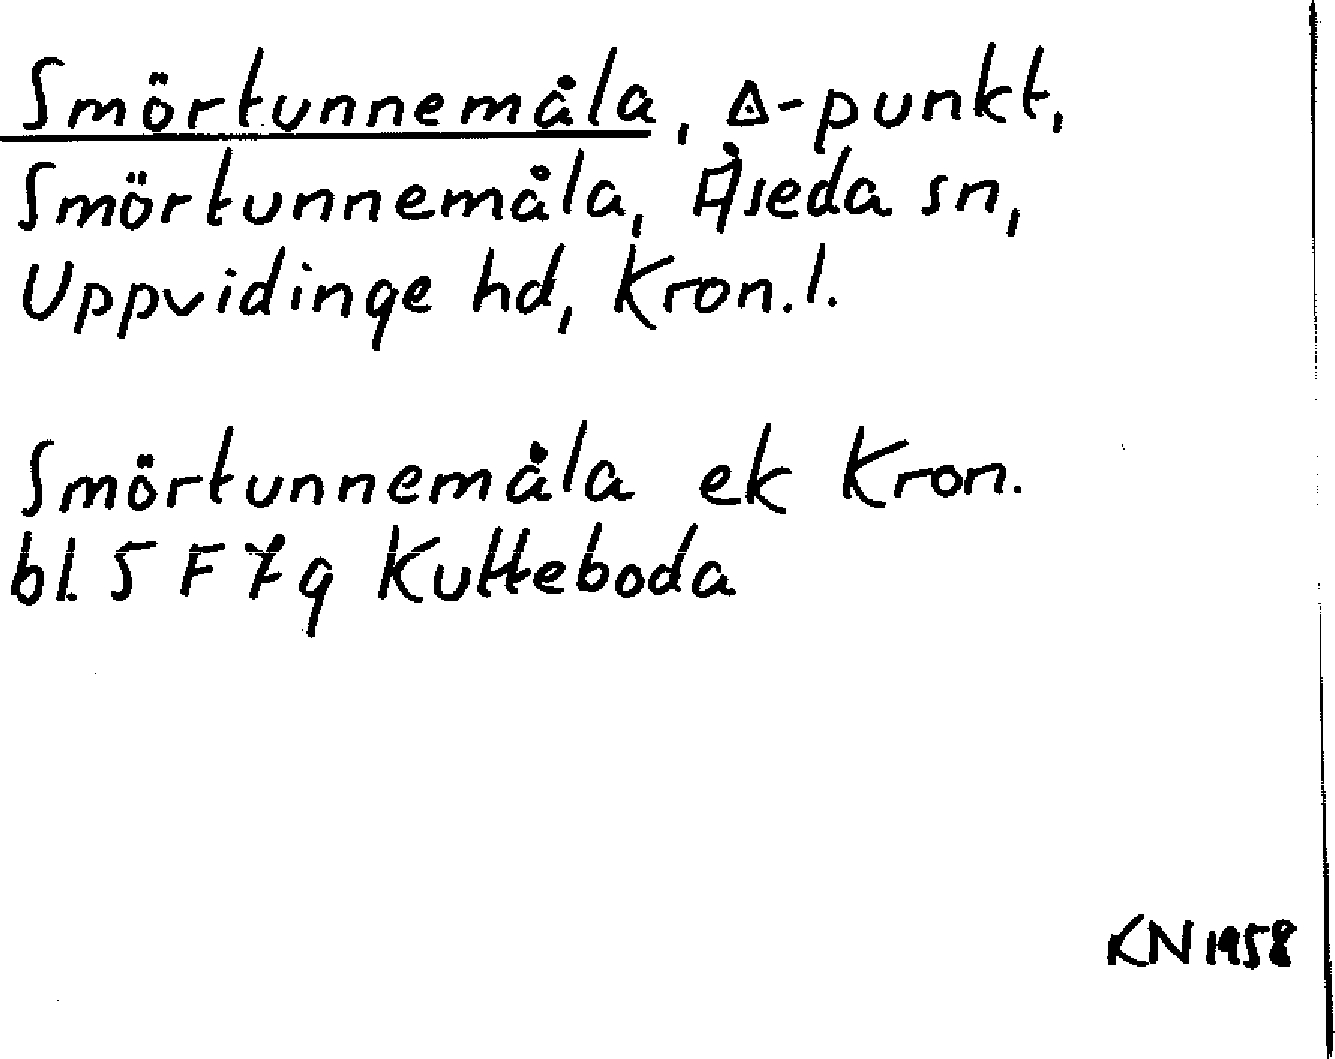 Smörtunnemåla, ∆-punkt,
Smörtunnemåla, Åseda sn,
Uppvidinge hd, Kron.l.
Smörtunnemåla ek Kron.
bl. 5 F 7g Kutteboda
KN 1958